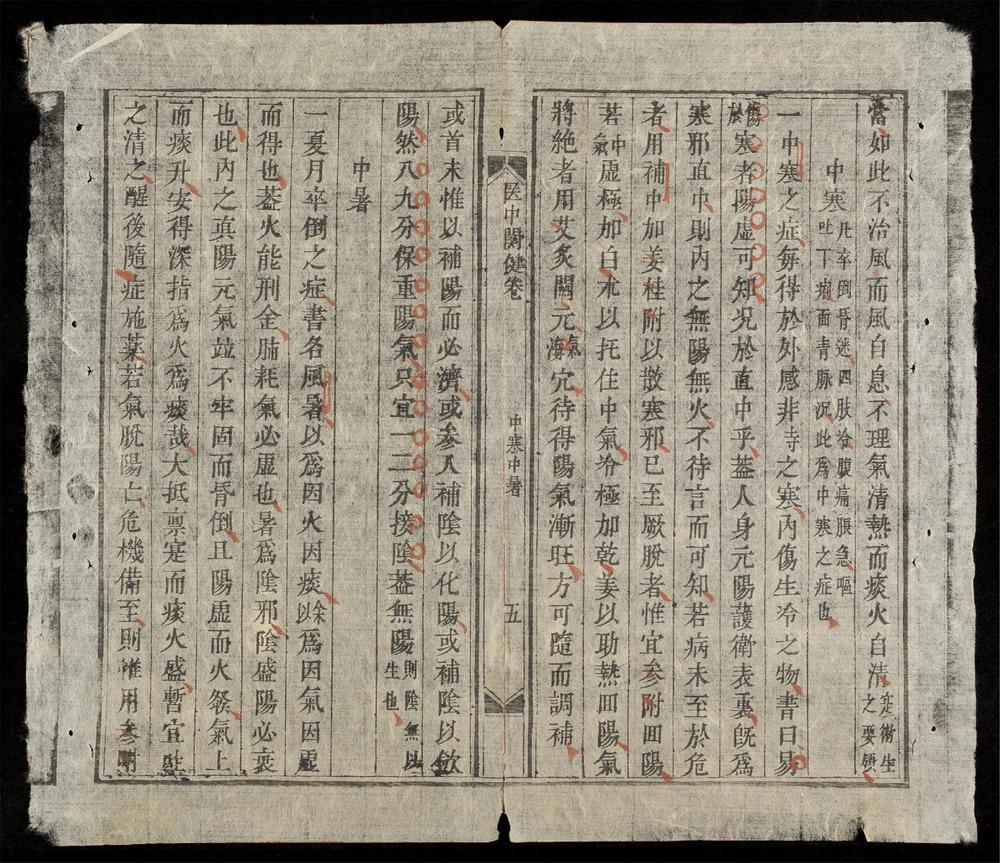 嘗如此不治風而風自息不理氣清熱而痰火自清寔衛生之要領
中寒凡卒倒昏迷四肢冷腹痛脹急嘔吐下痢面青脉沉此爲中寒之症也
一中寒之症每得於外感非時之寒内傷生冷之物書曰易
傷於寒者陽虚可知况於直中乎蓋人身元陽護衛表裏旣爲
寒邪直中則内之無陽無火不待言而可知若病未至於危
者用補中加姜桂附以散寒邪已至厥脫者惟宜参附囬陽
若中氣虚極加白朮以托住中氣冷極加乾姜以助熱囬陽氣
將絶者用艾炙關元氣海穴待得陽氣漸旺方可隨而調補
医中関健卷
中寒中暑
五
或首末惟以補陽而必濟或参入補陰以化陽或補陰以斂
陽然八九分保重陽氣只宜一二分接陰蓋無陽則陰無以生也
中暑
一夏月卒倒之症書名風暑以爲因火因痰余以爲因氣因虚
而得也蓋火能刑金肺耗氣必虚也暑爲陰邪陰盛陽必衰
也此内之眞陽元氣竝不牢固而昏倒且陽虚而火發氣上
而痰升安得深指爲火爲痰哉大抵稟寔而痰火盛暫宜
之清之醒後隨症施藥若氣脫陽亡危機備至則惟用参附